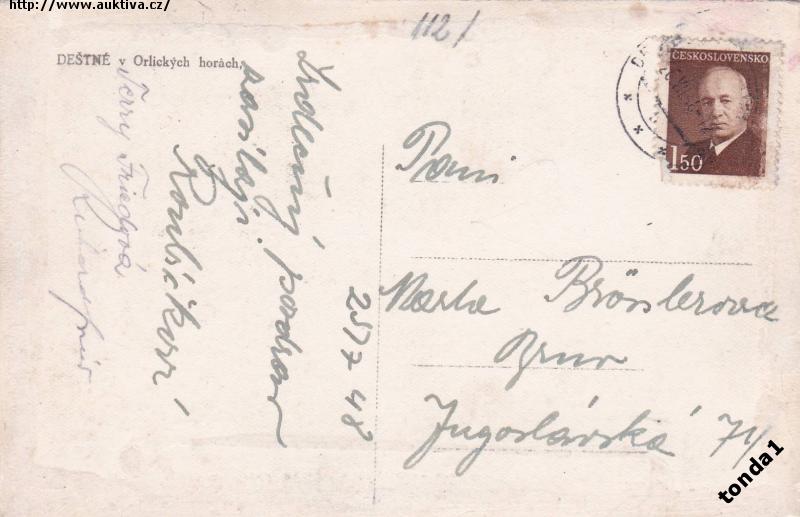 http://www.auktiva.cz/
112/
DEŠTNÉ v Orlických horách,
Srdečný pozdrav
zasílají
Roubíčkovi
25/7 48
Terry Friedová
ČESKOSLOVENSKO
1 50
Paní
Marta Brösslerova
Brno
Jugoslávská 71/
tonda1